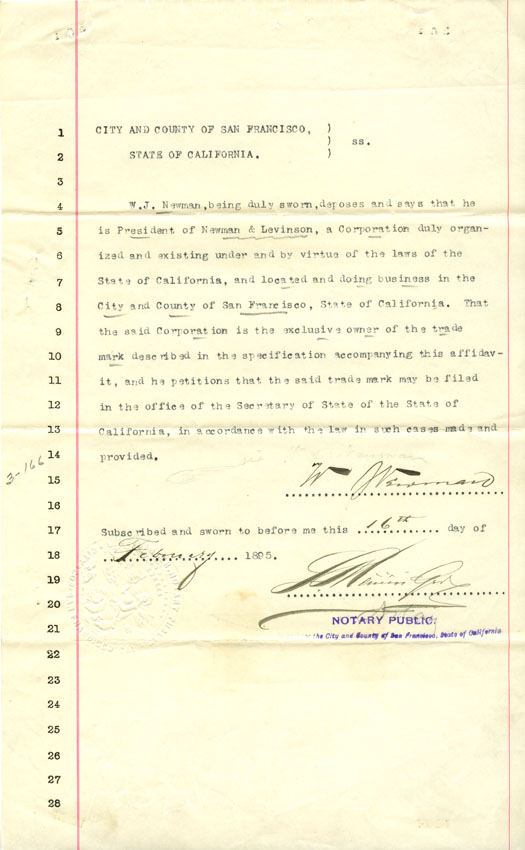 1 CITY AND COUNTY OF SAN FRANCISCO, )
) ss.
2 STATE OF CALIFORNIA. )
3
4 W.J. Newman,being duly sworn,deposes and says that he
5 is President of Newman & Levinson, a Corporation duly organ-
6 ized and existing under and by virtue of the laws of the
7 State of California, and located and doing business in the
8 City and County of San Francisco, State of California. That
9 the said Corporation is the exclusive owner of the trade
10 mark described in the specification accompanying this affidav-
11 it, and he petitions that the said trade mark may be filed
12 in the office of the Secretary of State of the State of
13 California, in accordance with the law in such cases made and
14 provided.
3-166
15 W J Newman
16
17 Subscribed and sworn to before me this 16th day of
18 February 1895.
19
20
NOTARY PUBLIC.
21 the City and County of San Francisco, State of California
22
23
24
25
26
27
28